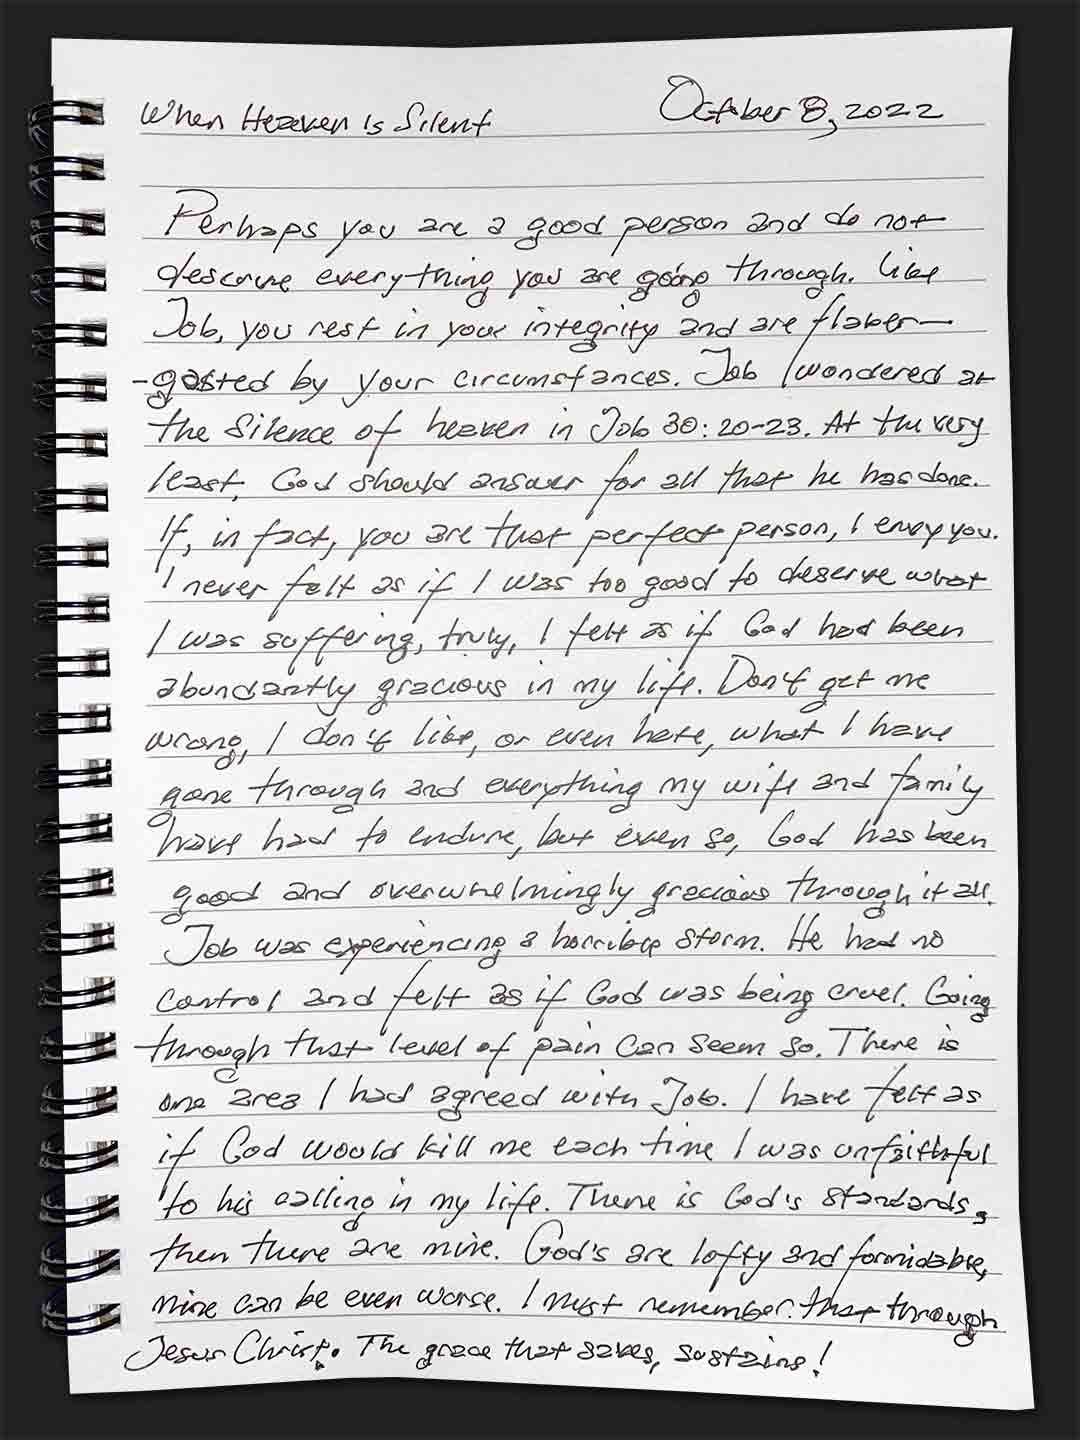 When Heaven is Silent
October 8, 2022
Perhaps you are a good person and do not
deserve everything you are going through. Like
Job, you rest in your integrity and are flaber-
-gasted by your circumstances. Job wondered at
the silence of heaven in Job 30:20-23. At the very
least, God should answer for all that he has done.
If, in fact, you are that perfect person, I envy you.
I never felt as if I was too good to deserve what
I was suffering, truly, I felt as if God had been
abundantly gracious in my life. Don't get me
wrong, I don't like, or even hate, what I have
gone through and everything my wife and family
have had to endure, but even so, God has been
good and overwhelmingly gracious through it all.
Job was experiencing a horrible storm. He had no
control and felt as if God was being cruel. Going
through that level of pain can seem so. There is
one area I had agreed with Job. I have felt as
if God would kill me each time I was unfaithful
to his calling in my life. There is God's standards,
then there are mine. God's are lofty and formidable,
mine can be even worse. I must remember that through
Jesus Christ. The grace that saves, sustains!